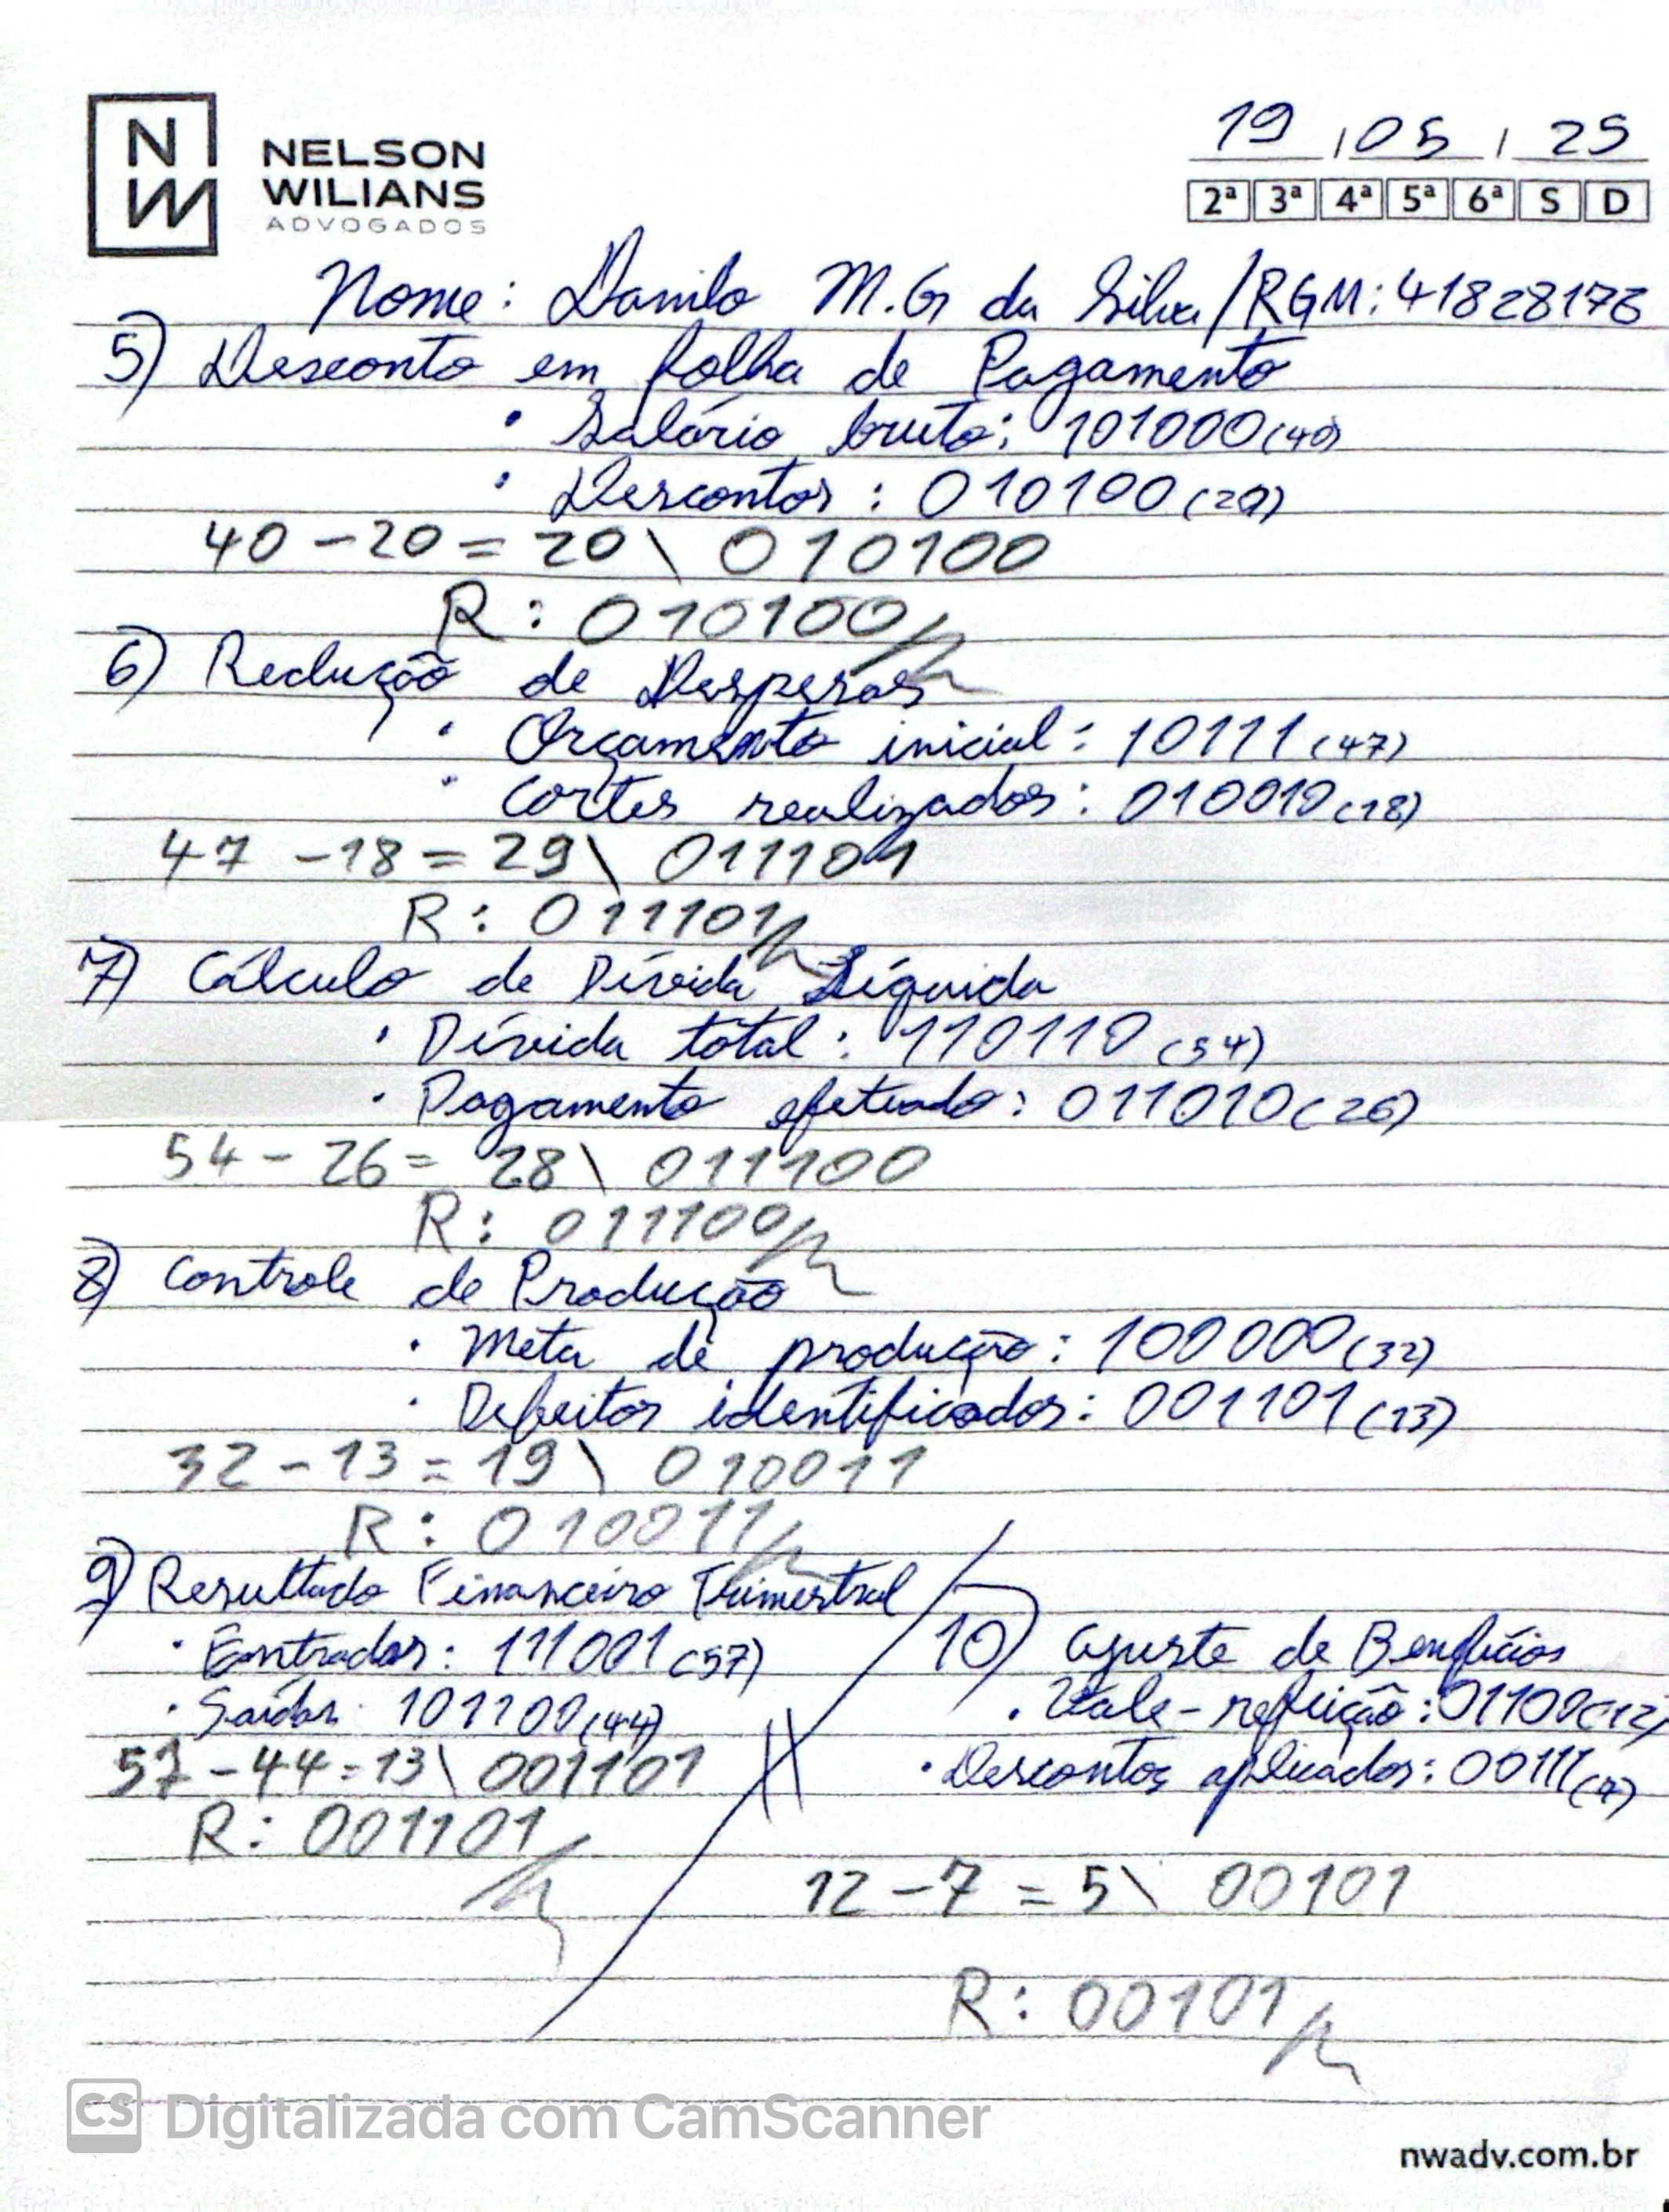 NW
NELSON
WILIANS
ADVOGADOS
19 / 05 / 25
2ª 3ª 4ª 5ª 6ª S D
Nome: Danilo M.G da Silva/RGM: 41828176
5) Desconto em folha de Pagamento
• Salário bruto: 101000 (40)
• Descontos: 010100 (20)
40 - 20 = 20 \ 010100
R: 010100
6) Redução de Despesas
• Orçamento inicial: 10111 (47)
• Cortes realizados: 010010 (18)
47 - 18 = 29 \ 011101
R: 011101
7) Cálculo de Dívida Líquida
• Dívida total: 110110 (54)
• Pagamento efetuado: 011010 (26)
54 - 26 = 28 \ 011100
R: 011100
8) Controle de Produção
• Meta de produção: 100000 (32)
• Defeitos identificados: 001101 (13)
32 - 13 = 19 \ 010011
R: 010011
9) Resultado Financeiro Trimestral
• Entradas: 111001 (57)
• Saídas: 101100 (44)
57 - 44 = 13 \ 001101
R: 001101
10) Ajuste de Benefícios
• Vale-refeição: 01100 (12)
• Descontos aplicados: 00111 (7)
12 - 7 = 5 \ 00101
R: 00101
CS Digitalizada com CamScanner
nwadv.com.br